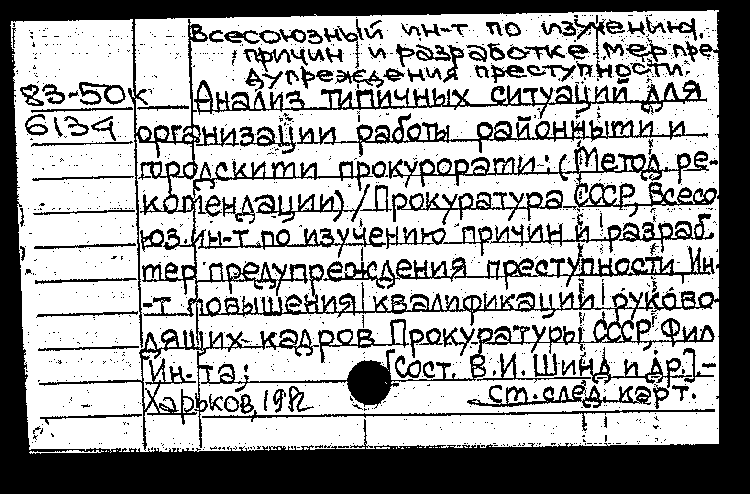 Всесоюзный ин-т по изучению,
причин и разработке мер пре-
дупреждения преступности.
83-50к Анализ типичных ситуаций для
6134 организации работы районными и
городскими прокурорами: (Метод. ре-
комендации) / Прокуратура СССР, Всесо
юз. ин-т по изучению причин и разраб.
мер предупреждения преступности, Ин-
-т повышения квалификации руково-
дящих кадров Прокуратуры СССР, Фил
Ин-та; [Сост. В.И. Шинд и др.].-
Харьков, 1982 Ст. след. карт.